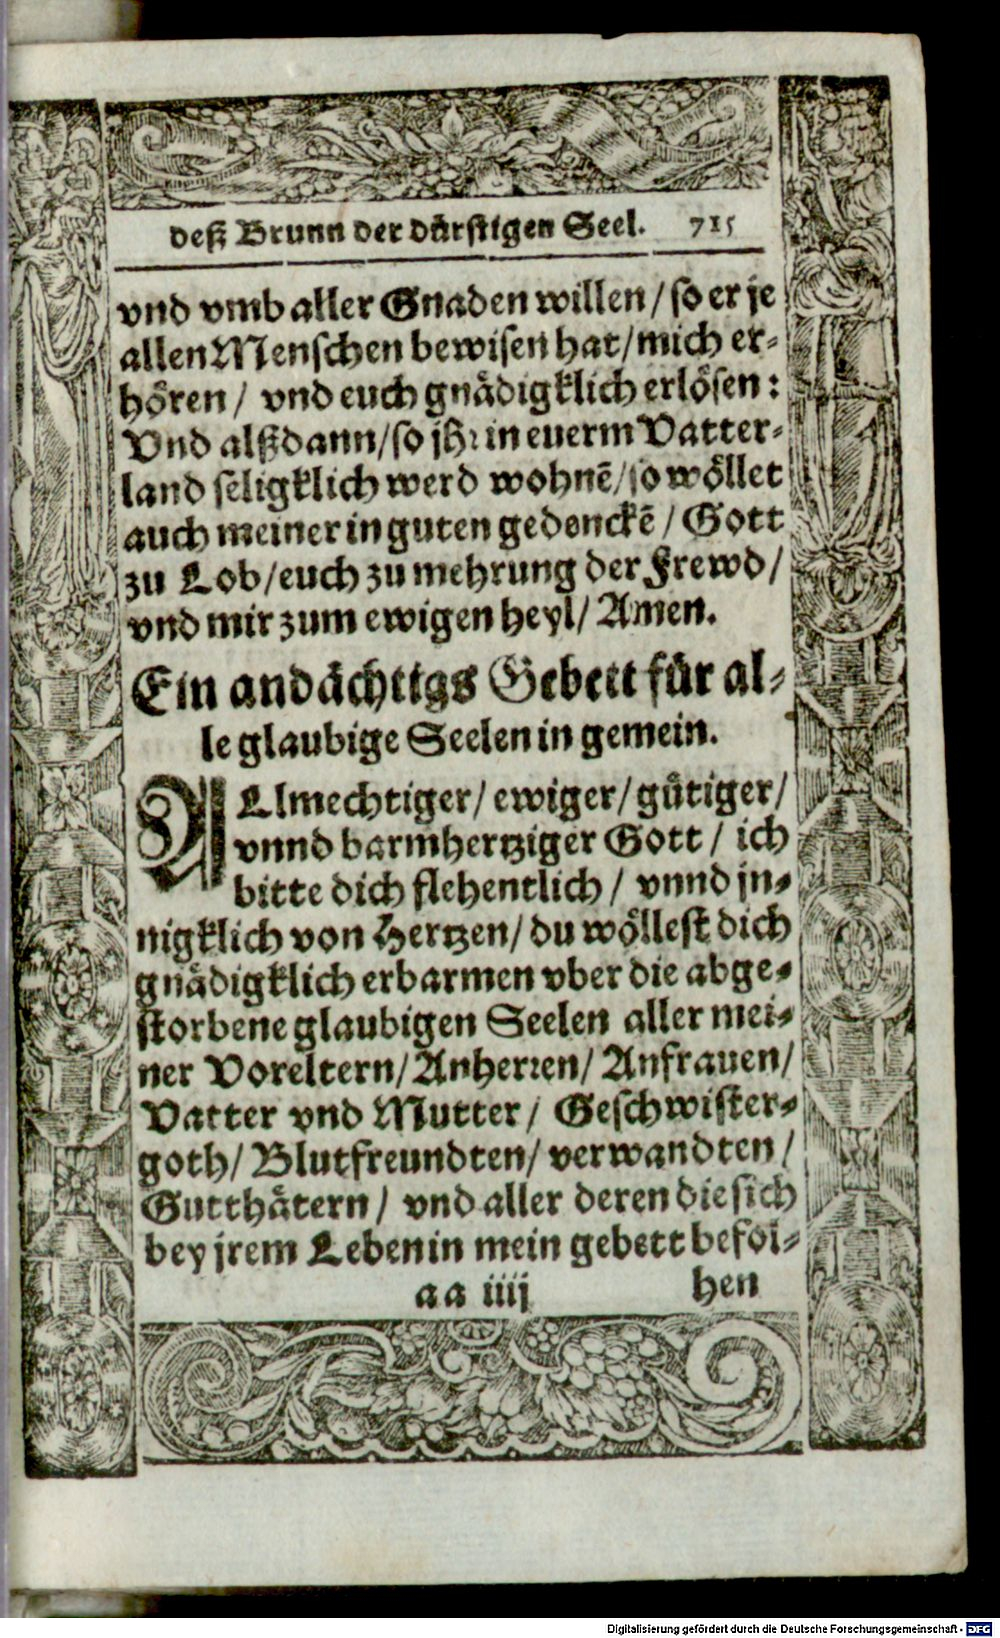 deß Brunn der dürstigen Seel. 715
vnd vmb aller Gnaden willen / so er je
allen Menschen bewisen hat / mich er-
hören / vnd euch gnädigklich erlösen:
Vnd alßdann / so jhr in euerm Vatter-
land seligklich werd wohnẽ / so wöllet
auch meiner in guten gedenckẽ / Gott
zu Lob / euch zu mehrung der Frewd /
vnd mir zum ewigen heyl / Amen.
Ein andächtigs Gebett für al-
le glaubige Seelen in gemein.
ALlmechtiger / ewiger / gütiger /
vnnd barmhertziger Gott / ich
bitte dich flehentlich / vnnd jn-
nigklich von Hertzen / du wöllest dich
gnädigklich erbarmen vber die abge-
storbene glaubigen Seelen aller mei-
ner Voreltern / Anherren / Anfrauen /
Vatter vnd Mutter / Geschwister-
goth / Blutfreundten / verwandten /
Gutthätern / vnd aller deren die sich
bey jrem Leben in mein gebett befol-
aa iiij hen
Digitalisierung gefördert durch die Deutsche Forschungsgemeinschaft - DFG